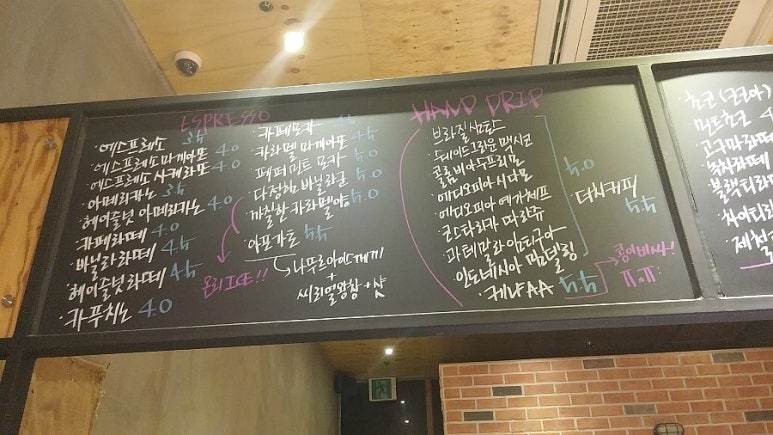 ESPRESSO
에스프레소 3.5
에스프레소 마끼아또 4.0
에스프레소 사케라또 4.0
아메리카노 3.5
헤이즐넛 아메리카노 4.0
카페라떼 4.0
바닐라 라떼 4.5
헤이즐넛 라떼 4.5
카푸치노 4.0
카페모카 4.5
카라멜 마끼아또 4.5
페퍼민트 모카 5.0
다정한 바닐라군 5.0
까칠한 카라멜양 5.0
온리 ICE!!
아포가토 5.5
나뚜르아이스께끼
+
씨리얼왕창 +샷
HAND DRIP
브라질 쌈탄스
트레이드그라운 멕시코
콜롬비아 수프리모
에디오피아 시다모
에디오피아 예가체프
코스타리카 따라쥬
과테말라 안티구아
인도네시아 만델링
5.0
더치커피
5.5
케냐 AA 5.5
콩이비싸!
ㅠㅠ
초코 (코코아)
민트초코
고구마라떼
녹차라떼
블랙티라떼
차이티라
제철